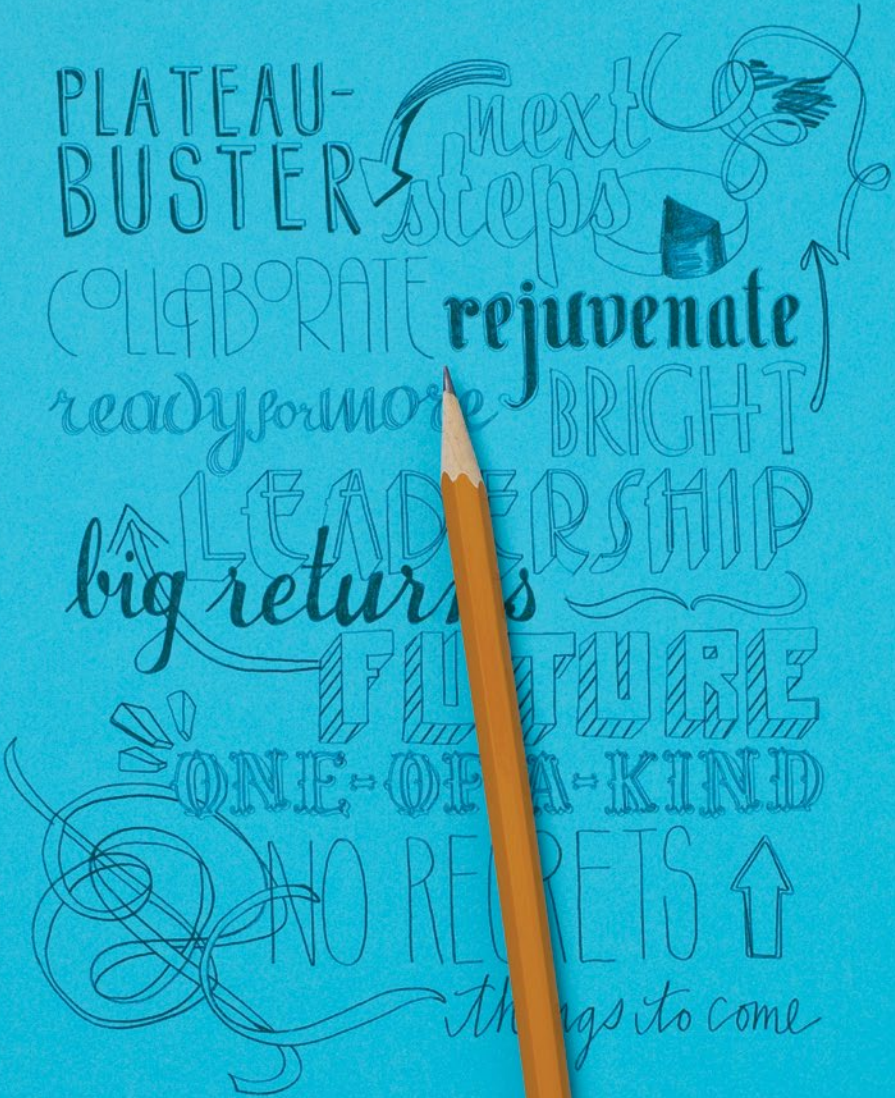 PLATEAU-
BUSTER
next
steps
COLLABORATE
rejuvenate
ready for more
BRIGHT
LEADERSHIP
big returns
FUTURE
ONE-OF-A-KIND
NO REGRETS
things to come